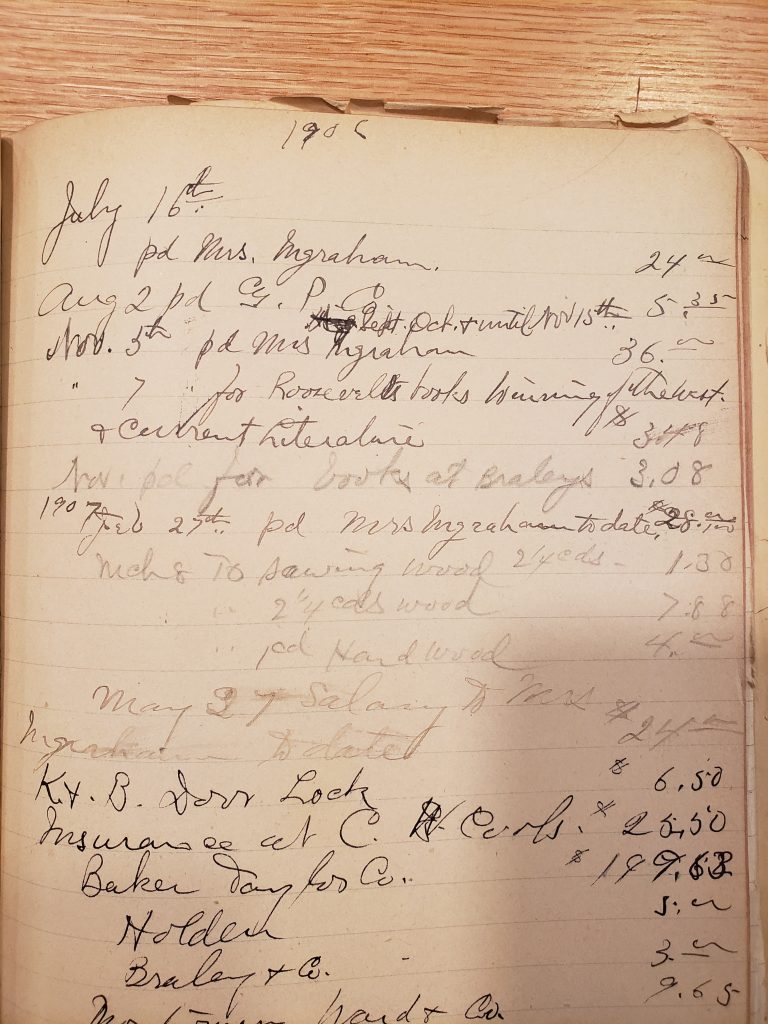 1906
July 16th
pd Mrs. Ingraham. 24.00
Aug 2 pd G. P. Co 5.35
Sept. Oct. & until Nov 15th
Nov. 5th pd Mrs Ingraham 36.00
" 7 " for Roosevelts books Winning of the West.
& Current Literature $3.48
Nov. pd for books at Braleys 3.08
1907 Feb 27th. pd Mrs Ingraham to date, $28.00
Mch 8 To sawing wood 2 1/4 cds - 1.30
" 2 1/4 cds wood 7.88
" pd Hard wood 4.00
May 27 Salary to Mrs
Ingraham to date $24.00
K. & B. Door Lock $6.50
Insurance at C. H. $25.50
Baker Taylor Co. $149.63
Holden 5.00
Braley & Co. 3.00
Ward & Co. 9.65